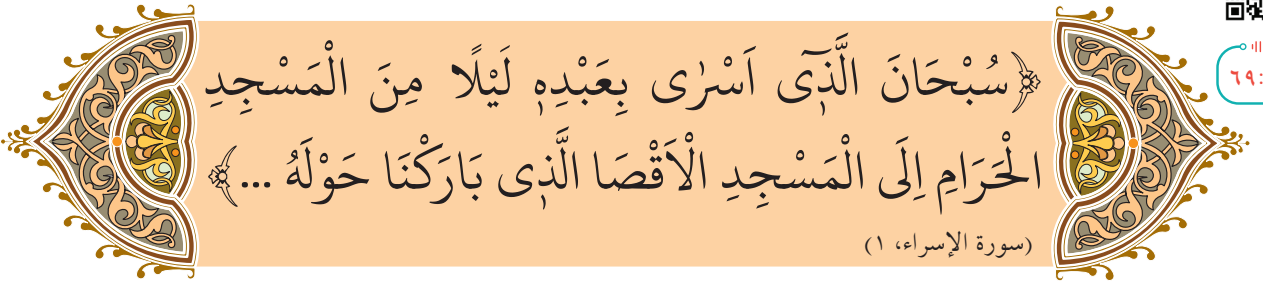 ﴿سُبْحَانَ الَّذ۪ٓى اَسْرٰى بِعَبْدِه۪ لَيْلًا مِنَ الْمَسْجِدِ
الْحَرَامِ اِلَى الْمَسْجِدِ الْاَقْصَا الَّذ۪ى بَارَكْنَا حَوْلَهُ ...﴾
(سورة الإسراء، ١)
٦٩: